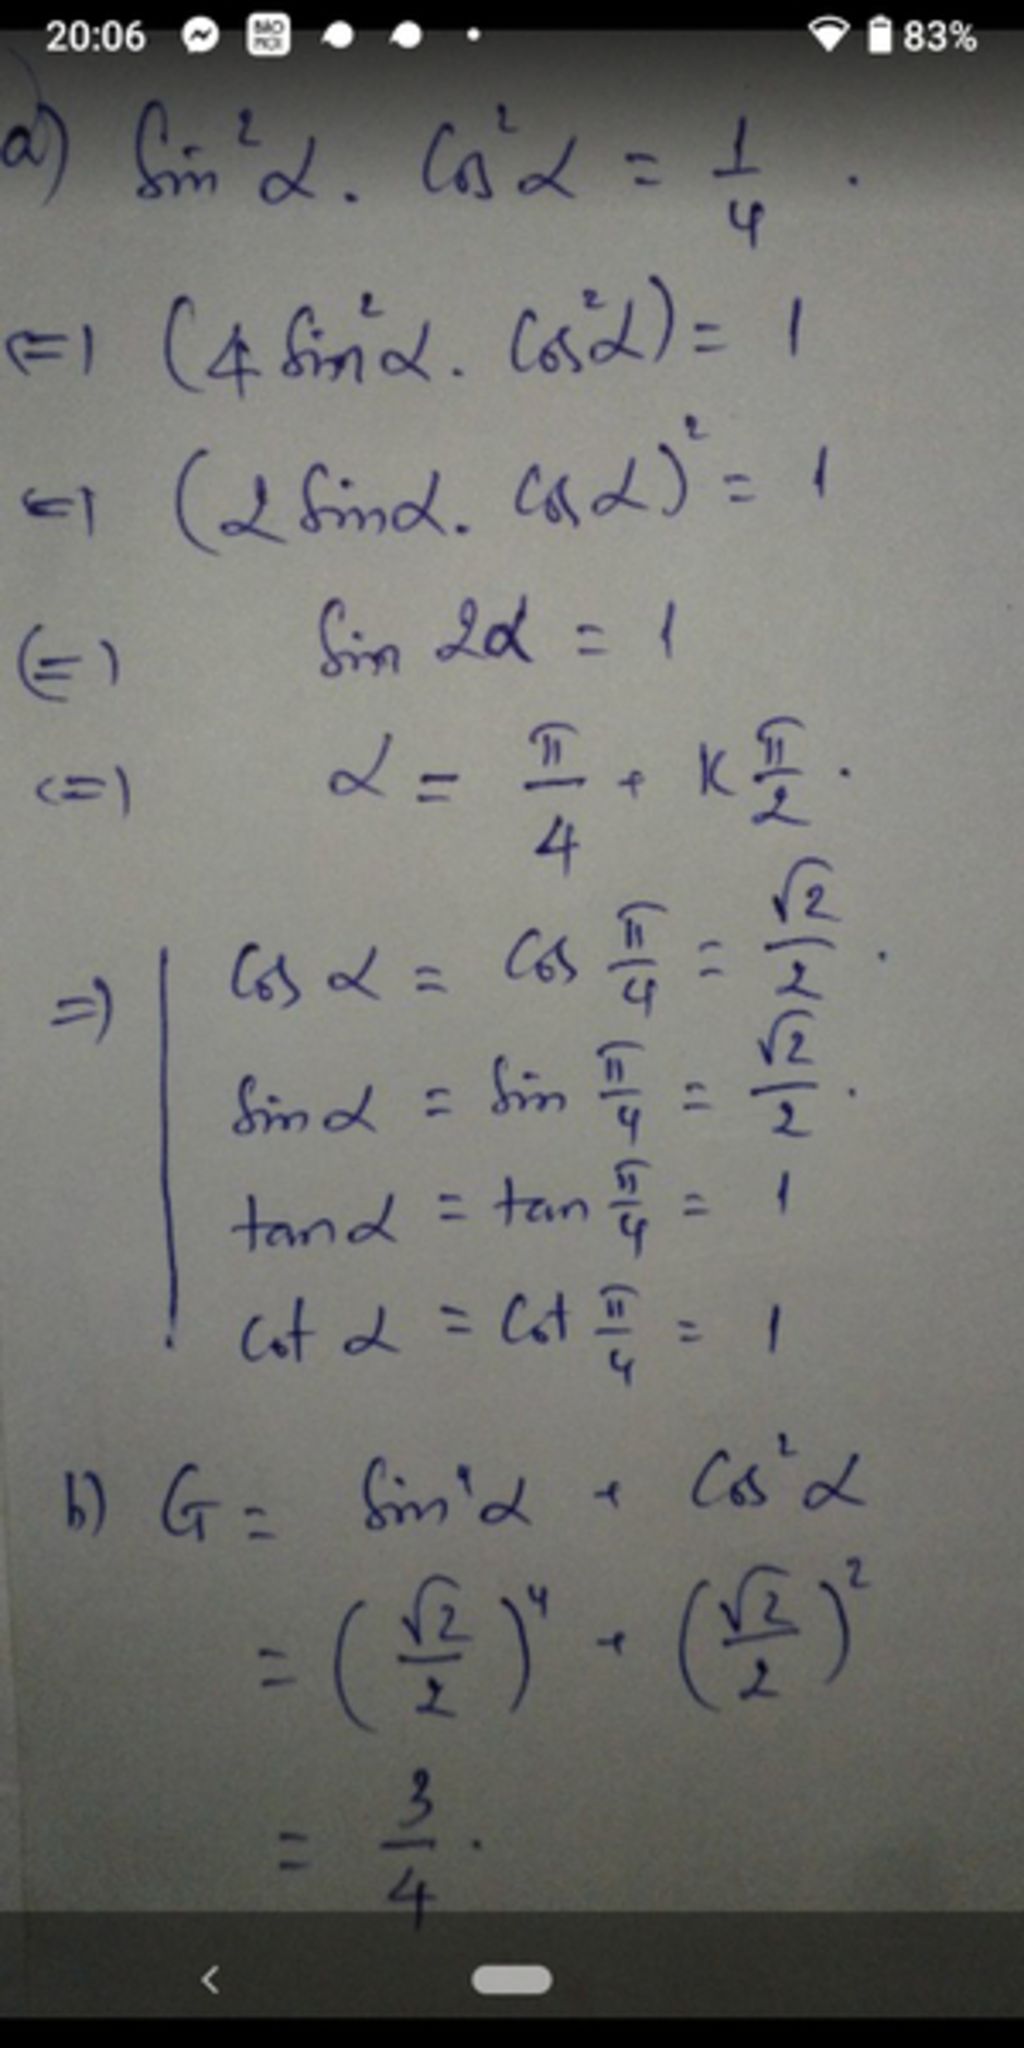 20:06 BÁO MỚI 83%
a) Sin²α. Cos²α = 1/4 .
<=> (4 Sin²α. Cos²α) = 1
<=> (2 Sinα. Cosα)² = 1
<=> Sin 2α = 1
<=> α = π/4 + K π/2 .
=> Cos α = Cos π/4 = √2/2 .
Sin α = Sin π/4 = √2/2 .
tan α = tan π/4 = 1
Cot α = Cot π/4 = 1
b) G = Sin⁴α + Cos²α
= (√2/2)⁴ + (√2/2)²
= 3/4 .